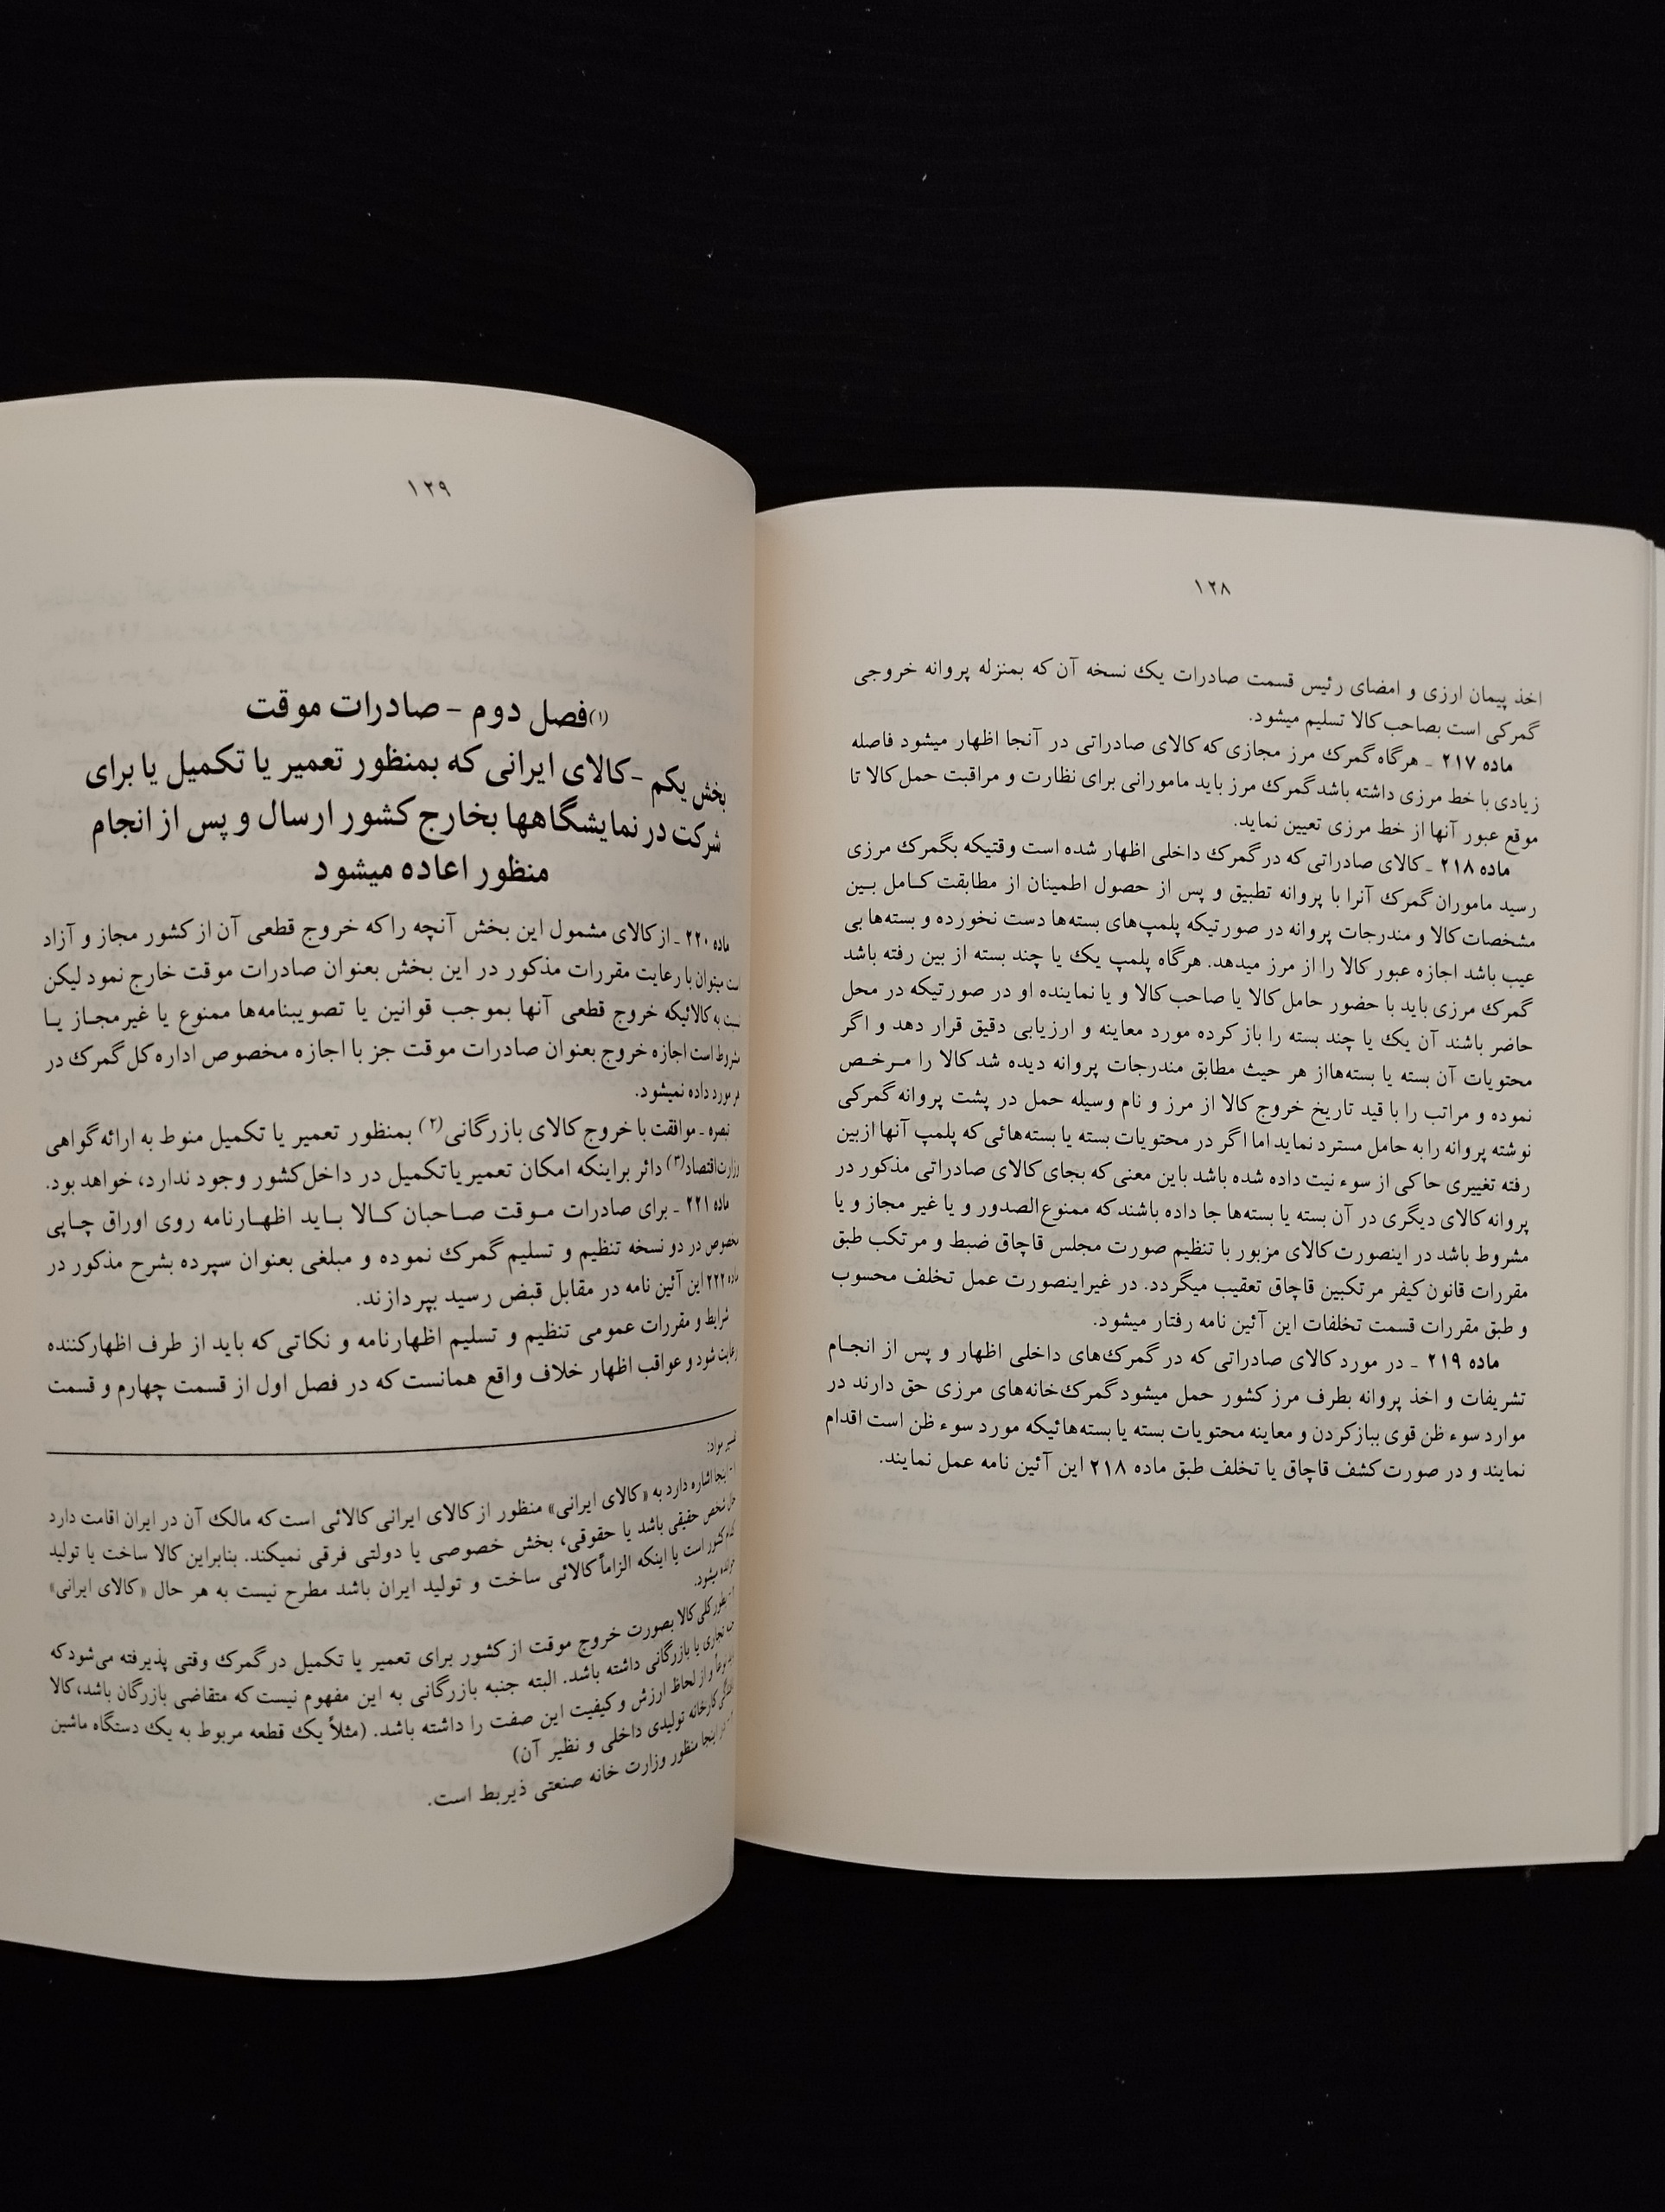 ۱۲۸
اخذ پیمان ارزی و امضای رئیس قسمت صادرات یک نسخه آن که بمنزله پروانه خروجی
گمرکی است بصاحب کالا تسلیم میشود.
ماده ۲۱۷ ـ هرگاه گمرک مرز مجازی که کالای صادراتی در آنجا اظهار میشود فاصله
زیادی با خط مرزی داشته باشد گمرک مرز باید مامورانی برای نظارت و مراقبت حمل کالا تا
موقع عبور آنها از خط مرزی تعیین نماید.
ماده ۲۱۸ ـ کالای صادراتی که در گمرک داخلی اظهار شده است وقتیکه بگمرک مرزی
رسید ماموران گمرک آنرا با پروانه تطبیق و پس از حصول اطمینان از مطابقت کـامل بـین
مشخصات کالا و مندرجات پروانه در صورتیکه پلمپ‌های بسته‌ها دست نخورده و بسته‌ها بی
عیب باشد اجازه عبور کالا را از مرز میدهد. هرگاه پلمپ یک یا چند بسته از بین رفته باشد
گمرک مرزی باید با حضور حامل کالا یا صاحب کالا و یا نماینده او در صورتیکه در محل
حاضر باشند آن یک یا چند بسته را باز کرده مورد معاینه و ارزیابی دقیق قرار دهد و اگر
محتویات آن بسته یا بسته‌هااز هر حیث مطابق مندرجات پروانه دیده شد کالا را مـرخـص
نموده و مراتب را با قید تاریخ خروج کالا از مرز و نام وسیله حمل در پشت پروانه گمرکی
نوشته پروانه را به حامل مسترد نماید اما اگر در محتویات بسته یا بسته‌هائی که پلمپ آنها ازبین
رفته تغییری حاکی از سوء نیت داده شده باشد باین معنی که بجای کالای صادراتی مذکور در
پروانه کالای دیگری در آن بسته یا بسته‌ها جا داده باشند که ممنوع‌الصدور و یا غیر مجاز و یا
مشروط باشد در اینصورت کالای مزبور با تنظیم صورت مجلس قاچاق ضبط و مرتکب طبق
مقررات قانون کیفر مرتکبین قاچاق تعقیب میگردد. در غیراینصورت عمل تخلف محسوب
و طبق مقررات قسمت تخلفات این آئین نامه رفتار میشود.
ماده ۲۱۹ ـ در مورد کالای صادراتی که در گمرک‌های داخلی اظهار و پس از انجـام
تشریفات و اخذ پروانه بطرف مرز کشور حمل میشود گمرک‌خانه‌های مرزی حق دارند در
موارد سوء ظن قوی ببازکردن و معاینه محتویات بسته یا بسته‌هائیکه مورد سوء ظن است اقدام
نمایند و در صورت کشف قاچاق یا تخلف طبق ماده ۲۱۸ این آئین نامه عمل نمایند.
۱۲۹
(۱)فصل دوم - صادرات موقت
بخش یکم - کالای ایرانی که بمنظور تعمیر یا تکمیل یا برای
شرکت در نمایشگاهها بخارج کشور ارسال و پس از انجام
منظور اعاده میشود
ماده ۲۲۰ ـ از کالای مشمول این بخش آنچه را که خروج قطعی آن از کشور مجاز و آزاد
است میتوان با رعایت مقررات مذکور در این بخش بعنوان صادرات موقت خارج نمود لیکن
نسبت به کالائیکه خروج قطعی آنها بموجب قوانین یا تصویبنامه‌ها ممنوع یا غیرمجـاز یـا
مشروط است اجازه خروج بعنوان صادرات موقت جز با اجازه مخصوص اداره کل گمرک در
هر مورد داده نمیشود.
تبصره ـ موافقت با خروج کالای بازرگانی(۲) بمنظور تعمیر یا تکمیل منوط به ارائه گواهی
وزارت اقتصاد(۳) دائر براینکه امکان تعمیر یا تکمیل در داخل کشور وجود ندارد، خواهد بود.
ماده ۲۲۱ ـ برای صادرات مـوقت صـاحبان کـالا بـاید اظهـارنامه روی اوراق چـاپی
مخصوص در دو نسخه تنظیم و تسلیم گمرک نموده و مبلغی بعنوان سپرده بشرح مذکور در
ماده ۲۲۲ این آئین نامه در مقابل قبض رسید بپردازند.
شرایط و مقررات عمومی تنظیم و تسلیم اظهارنامه و نکاتی که باید از طرف اظهارکننده
رعایت شود و عواقب اظهار خلاف واقع همانست که در فصل اول از قسمت چهارم و قسمت
تفسیر مواد:
اینجا اشاره دارد به «کالای ایرانی» منظور از کالای ایرانی کالائی است که مالک آن در ایران اقامت دارد
شخص حقیقی باشد یا حقوقی، بخش خصوصی یا دولتی فرقی نمیکند. بنابراین کالا ساخت یا تولید
کدام کشور است یا اینکه الزاماً کالائی ساخت و تولید ایران باشد مطرح نیست به هر حال «کالای ایرانی»
میشود.
بطور کلی کالا بصورت خروج موقت از کشور برای تعمیر یا تکمیل در گمرک وقتی پذیرفته می‌شود که
تجاری یا بازرگانی داشته باشد. البته جنبه بازرگانی به این مفهوم نیست که متقاضی بازرگان باشد، کالا
و از لحاظ ارزش و کیفیت این صفت را داشته باشد. (مثلاً یک قطعه مربوط به یک دستگاه ماشین
کارخانه تولیدی داخلی و نظیر آن)
اینجا منظور وزارت خانه صنعتی ذیربط است.